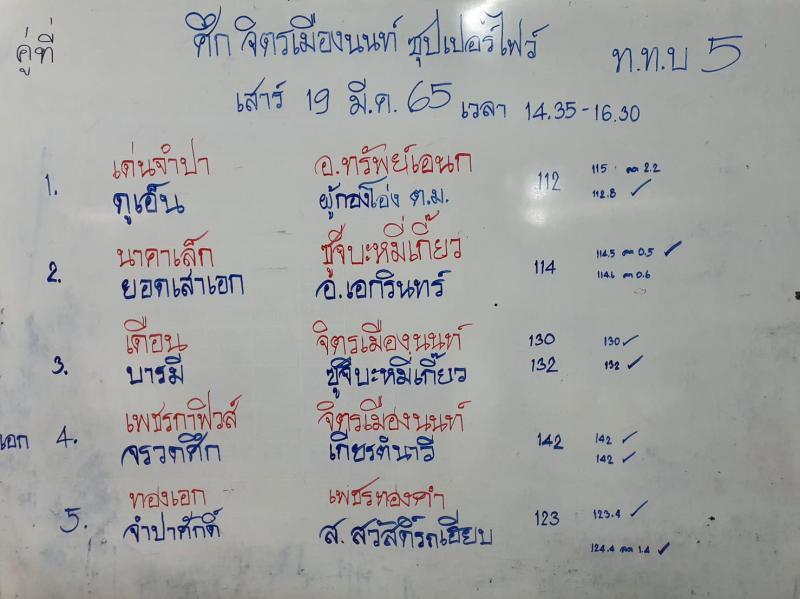 คู่ที่ ศึก จิตรเมืองนนท์ ซุปเปอร์ไฟว์ ท.ท.บ 5
เสาร์ 19 มี.ค. 65 เวลา 14.35-16.30
1. เด่นจำปา อ.ทรัพย์เอนก 112 115 2.2
ดูเอ็น ผู้กองโอ่ง ต.ม. 112.8 ✓
2. นาคาเล็ก ซูจีบะหมี่เกี๊ยว 114 114.5 0.5 ✓
ยอดเสาเอก อ.เอกรินทร์ 114.6 0.6
3. เดือน จิตรเมืองนนท์ 130 130 ✓
บารมี ซูจีบะหมี่เกี๊ยว 132 132 ✓
เอก 4. เพชรกาฟิวส์ จิตรเมืองนนท์ 142 142 ✓
จรวดศึก เกียรตินาวี 142 ✓
5. ทองเอก เพชรทองคำ 123 123.4 ✓
จำปาศักดิ์ ส.สวัสดิ์รถเฮียบ 124.4 1.4 ✓